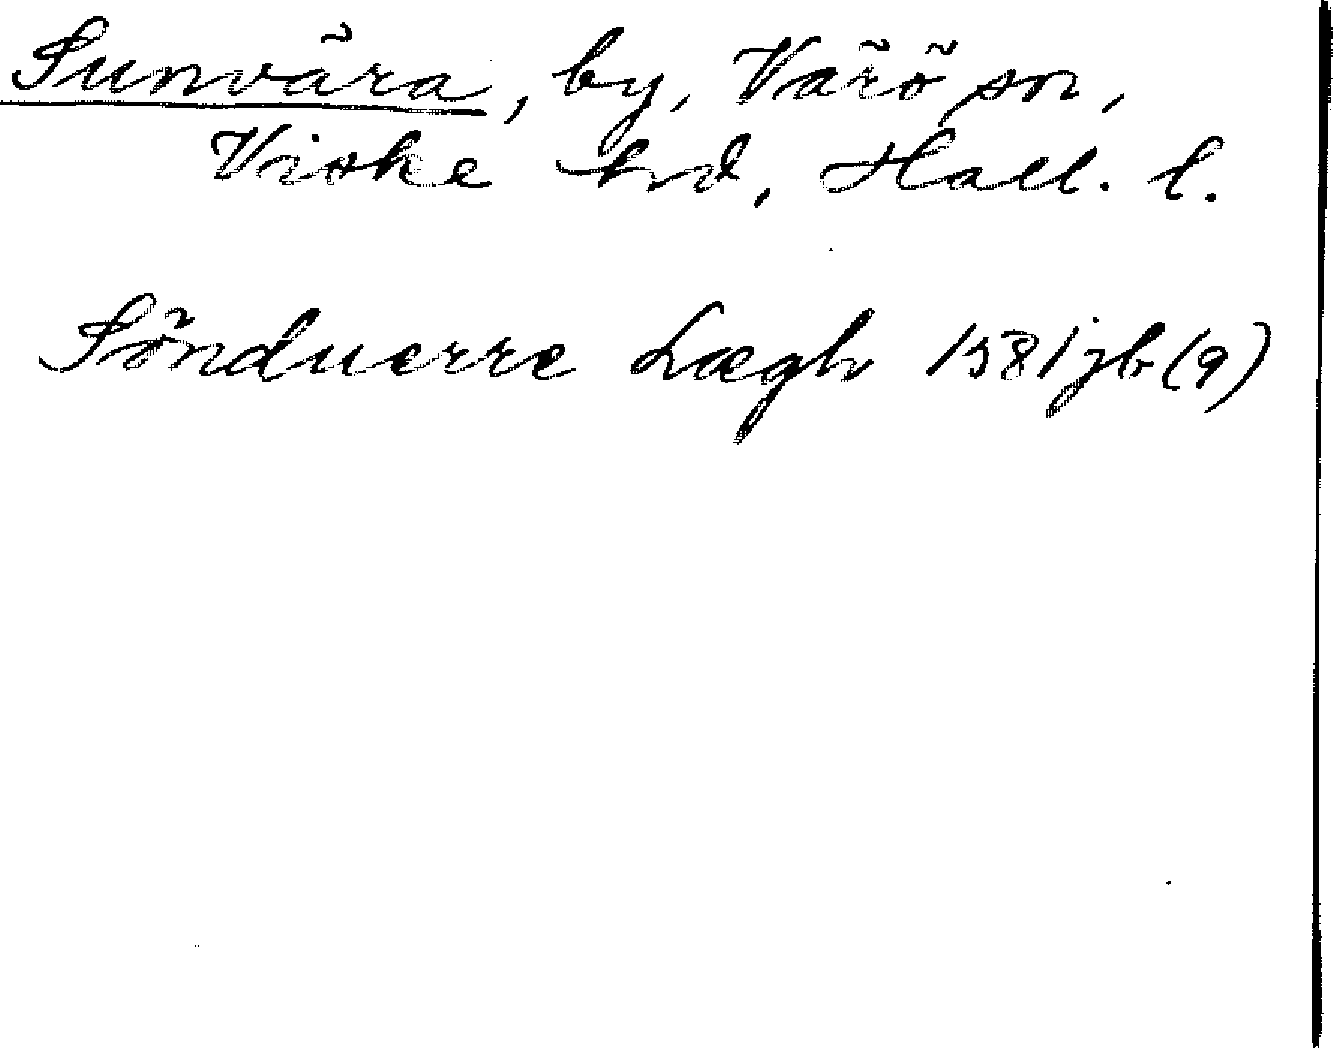 Sunvära, by, Värö sn,
Viske hd, Hall. l.
Sönduerre Lægh 1581 jb (9)